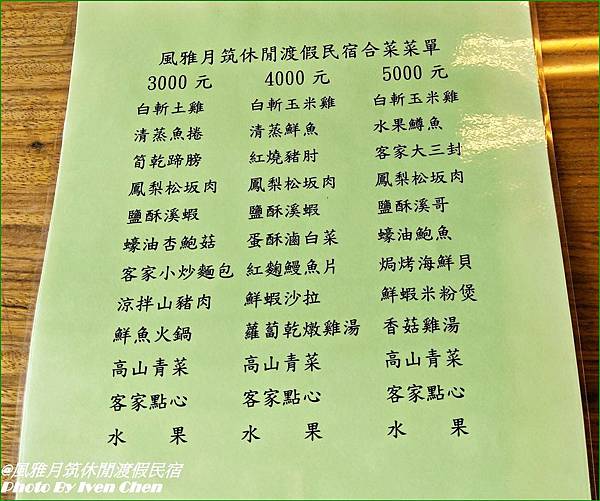 風雅月筑休閒渡假民宿合菜菜單
3000 元 4000 元 5000 元
白斬土雞 白斬玉米雞 白斬玉米雞
清蒸魚捲 清蒸鮮魚 水果鱒魚
筍乾蹄膀 紅燒豬肘 客家大三封
鳳梨松坂肉 鳳梨松坂肉 鳳梨松坂肉
鹽酥溪蝦 鹽酥溪蝦 鹽酥溪哥
蠔油杏鮑菇 蛋酥滷白菜 蠔油鮑魚
客家小炒麵包 紅麴鰻魚片 焗烤海鮮貝
涼拌山豬肉 鮮蝦沙拉 鮮蝦米粉煲
鮮魚火鍋 蘿蔔乾燉雞湯 香菇雞湯
高山青菜 高山青菜 高山青菜
客家點心 客家點心 客家點心
水 果 水 果 水 果
@風雅月筑休閒渡假民宿
Photo By Iven Chen